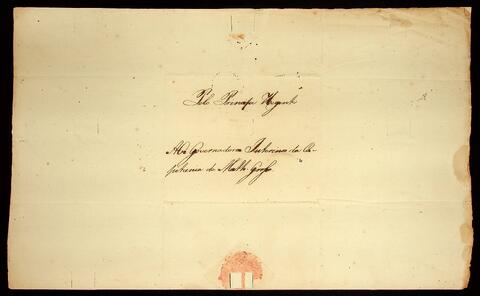 Pelo Principe Regente
Aos Governadores Interinos da Ca-
pitania de Matto Grosso